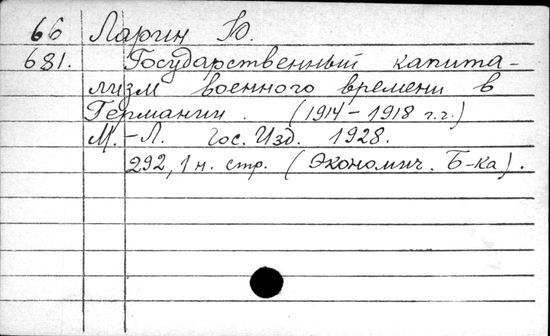 66 Ларин Ю.
681. Государственный капита-
лизм военного времени в
Германии. (1914-1918 г.г.)
М.-Л. Гос. Изд. 1928.
292, 1 н. стр. (Экономич. Б-ка).